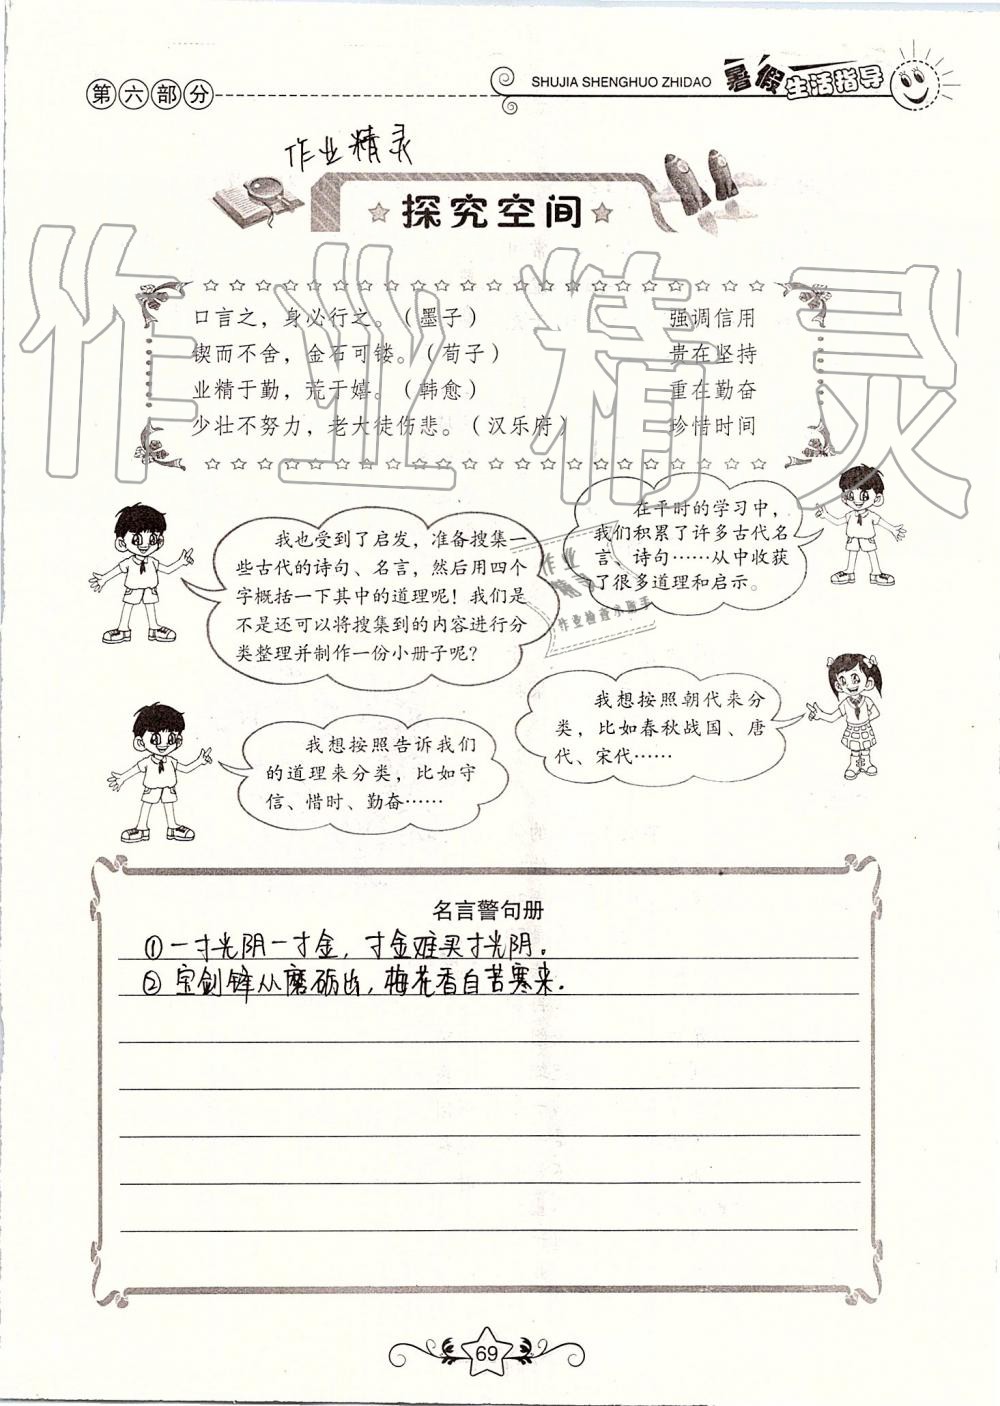 第六部分
SHUJIA SHENGHUO ZHIDAO 暑假生活指导
作业精灵
探究空间
口言之，身必行之。（墨子） 强调信用
锲而不舍，金石可镂。（荀子） 贵在坚持
业精于勤，荒于嬉。（韩愈） 重在勤奋
少壮不努力，老大徒伤悲。（汉乐府） 珍惜时间
作业精灵
在平时的学习中，
我们积累了许多古代名
言、诗句……从中收获
了很多道理和启示。
我也受到了启发，准备搜集一
些古代的诗句、名言，然后用四个
字概括一下其中的道理呢！我们是
不是还可以将搜集到的内容进行分
类整理并制作一份小册子呢？
作业
精灵
作业检查小助手
我想按照朝代来分
类，比如春秋战国、唐
代、宋代……
我想按照告诉我们
的道理来分类，比如守
信、惜时、勤奋……
名言警句册
①一寸光阴一寸金，寸金难买寸光阴。
②宝剑锋从磨砺出，梅花香自苦寒来。
69